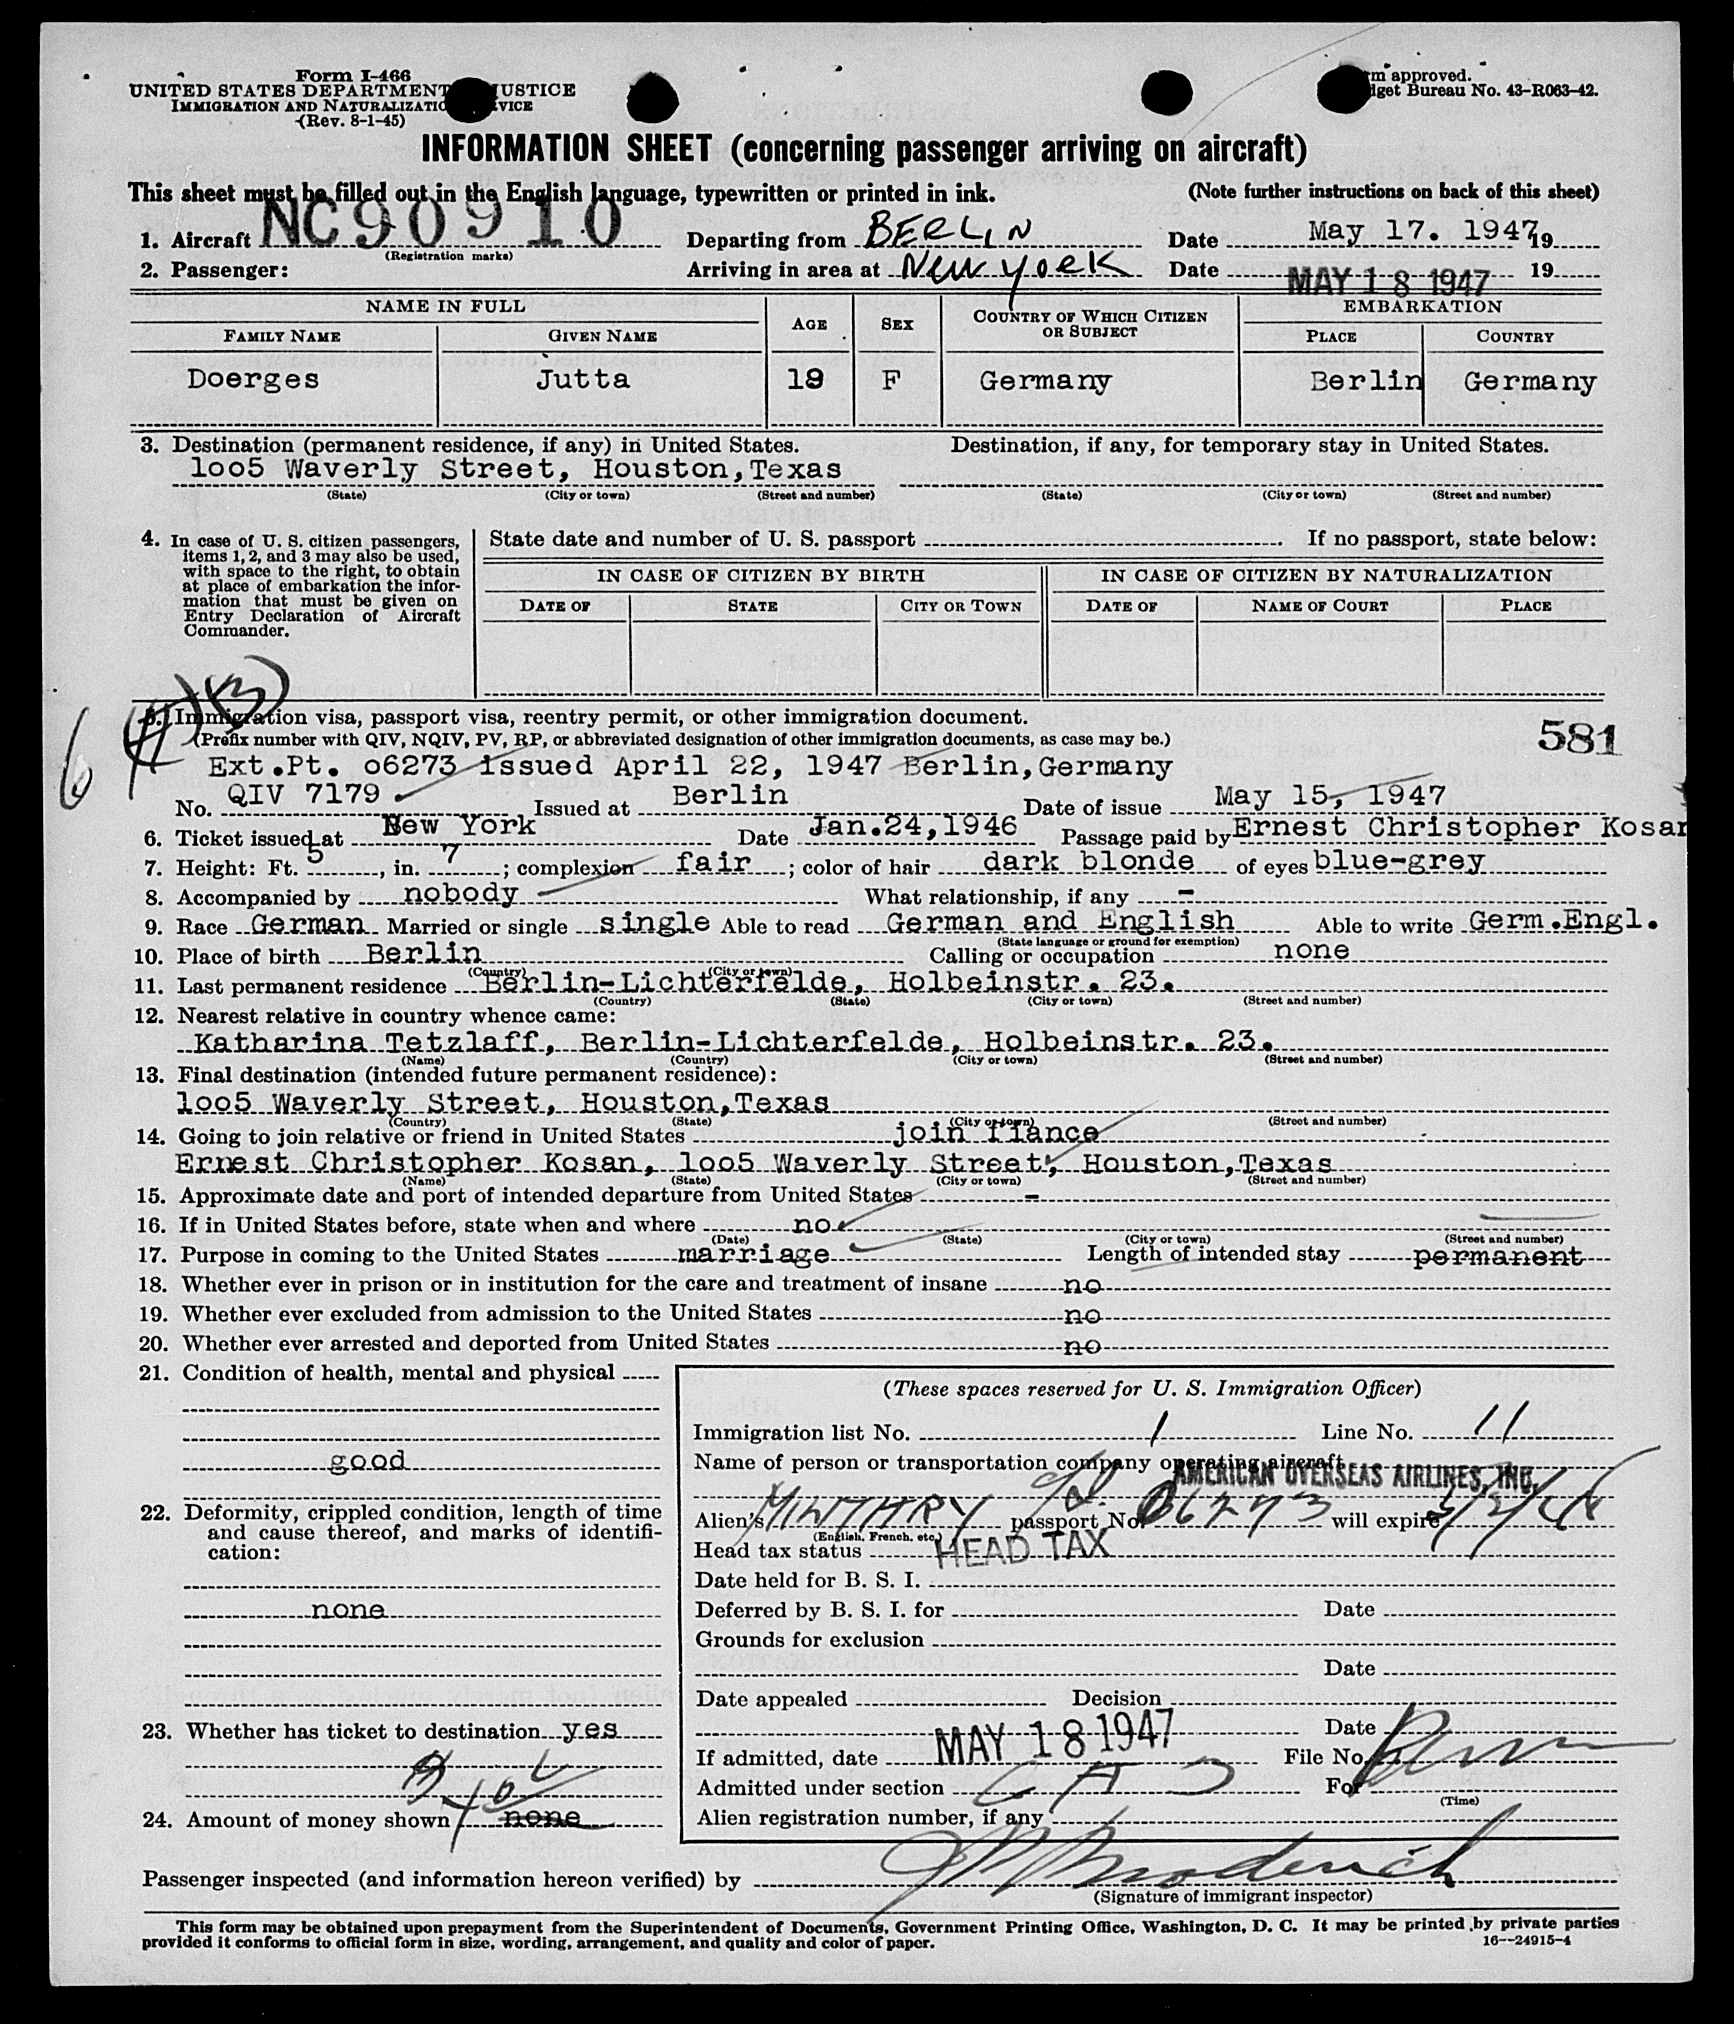 Form I-466
UNITED STATES DEPARTMENT JUSTICE
IMMIGRATION AND NATURALIZATION SERVICE
(Rev. 8-1-45)
Form approved.
Budget Bureau No. 43-R063-42.
INFORMATION SHEET (concerning passenger arriving on aircraft)
This sheet must be filled out in the English language, typewritten or printed in ink. (Note further instructions on back of this sheet)
1. Aircraft NC90910 Departing from BERLIN Date May 17. 1947 19
(Registration marks)
2. Passenger: Arriving in area at New York Date MAY 18 1947 19
NAME IN FULL AGE SEX COUNTRY OF WHICH CITIZEN OR SUBJECT EMBARKATION
FAMILY NAME GIVEN NAME PLACE COUNTRY
Doerges Jutta 19 F Germany Berlin Germany
3. Destination (permanent residence, if any) in United States. Destination, if any, for temporary stay in United States.
loo5 Waverly Street, Houston,Texas
(State) (City or town) (Street and number) (State) (City or town) (Street and number)
4. In case of U. S. citizen passengers,
items 1, 2, and 3 may also be used,
with space to the right, to obtain
at place of embarkation the infor-
mation that must be given on
Entry Declaration of Aircraft
Commander.
State date and number of U. S. passport If no passport, state below:
IN CASE OF CITIZEN BY BIRTH IN CASE OF CITIZEN BY NATURALIZATION
DATE OF STATE CITY OR TOWN DATE OF NAME OF COURT PLACE
5. Immigration visa, passport visa, reentry permit, or other immigration document.
(Prefix number with QIV, NQIV, PV, RP, or abbreviated designation of other immigration documents, as case may be.)
581
Ext.Pt. o6273 issued April 22, 1947 Berlin,Germany
No. QIV 7179 Issued at Berlin Date of issue May 15, 1947
6. Ticket issued at New York Date Jan.24,1946 Passage paid by Ernest Christopher Kosan
7. Height: Ft. 5, in. 7; complexion fair; color of hair dark blonde of eyes blue-grey
8. Accompanied by nobody What relationship, if any -
9. Race German Married or single single Able to read German and English Able to write Germ.Engl.
(State language or ground for exemption)
10. Place of birth Berlin Calling or occupation none
(Country) (City or town)
11. Last permanent residence Berlin-Lichterfelde, Holbeinstr. 23.
(Country) (State) (City or town) (Street and number)
12. Nearest relative in country whence came:
Katharina Tetzlaff, Berlin-Lichterfelde, Holbeinstr. 23.
(Name) (Country) (City or town) (Street and number)
13. Final destination (intended future permanent residence):
loo5 Waverly Street, Houston,Texas
(Country) (State) (City or town) (Street and number)
14. Going to join relative or friend in United States join fiance
Ernest Christopher Kosan, loo5 Waverly Street, Houston,Texas
(Name) (State) (City or town) (Street and number)
15. Approximate date and port of intended departure from United States -
16. If in United States before, state when and where no
(Date) (State) (City or town) (Street and number)
17. Purpose in coming to the United States marriage Length of intended stay permanent
18. Whether ever in prison or in institution for the care and treatment of insane no
19. Whether ever excluded from admission to the United States no
20. Whether ever arrested and deported from United States no
21. Condition of health, mental and physical
good
22. Deformity, crippled condition, length of time
and cause thereof, and marks of identifi-
cation:
none
23. Whether has ticket to destination yes
24. Amount of money shown none
(These spaces reserved for U. S. Immigration Officer)
Immigration list No. 1 Line No. 11
Name of person or transportation company operating aircraft
AMERICAN OVERSEAS AIRLINES, INC.
Alien's MILITARY passport No. 06273 will expire
(English, French, etc.)
Head tax status HEAD TAX
Date held for B. S. I.
Deferred by B. S. I. for Date
Grounds for exclusion
Date
Date appealed Decision
Date
If admitted, date MAY 18 1947 File No.
Admitted under section For
(Time)
Alien registration number, if any
Passenger inspected (and information hereon verified) by
(Signature of immigrant inspector)
This form may be obtained upon prepayment from the Superintendent of Documents, Government Printing Office, Washington, D. C. It may be printed by private parties
provided it conforms to official form in size, wording, arrangement, and quality and color of paper. 16—24915-4